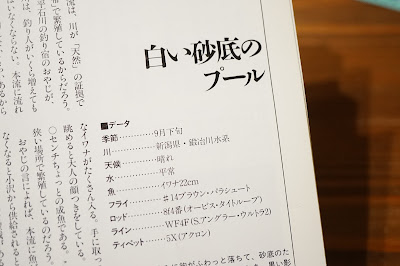 白い砂底の
プール
■データ
季節…………9月下旬
川……………新潟県・鍛治川水系
天候…………晴れ
水……………平常
魚……………イワナ22cm
フライ………#14ブラウン・パラシュート
ロッド………8f4番(オービス・タイトループ)
ライン………WF4F(S.アングラー・ウルトラ2)
ティペット……5X(アクロン)
流は、川が“天然”の証拠で
繁殖しているからだろう。
平石川の釣り宿のおやじが、
は、釣り人がいくら増えても
なくならない。本流に流れ
あるから
なイワナがたくさん入る。手に取っ
眺めると大人の顔つきをしている。
〇センチちょっとの成魚である。
狭い場所で繁殖しているのだろう。
おやじの言によれば、本流に魚
なくなると小沢から供給されると
ふわっと落ちて、砂底のた
黒い影